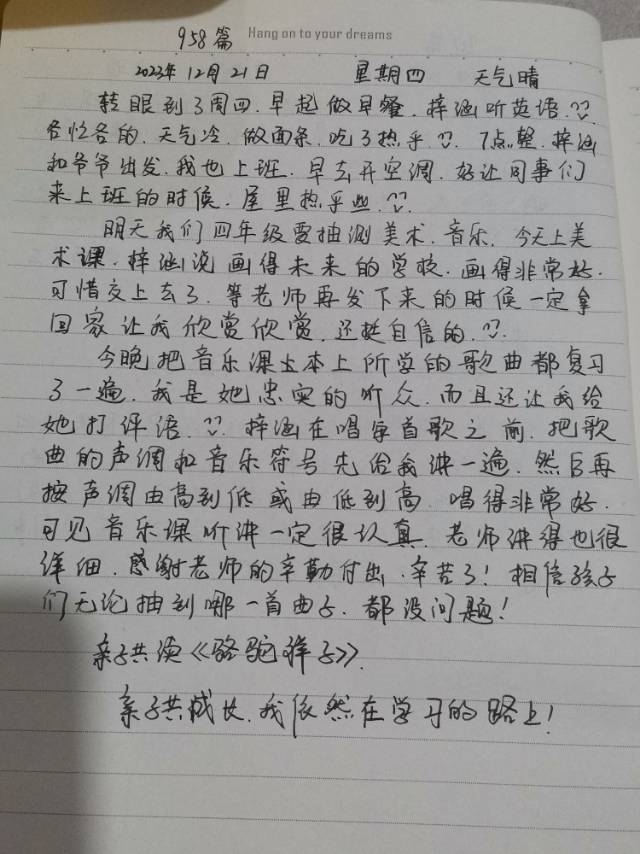 958篇 Hang on to your dreams
2023年12月21日 星期四 天气晴
转眼到了周四.早起做早餐.梓涵听英语.
各忙各的.天气冷.做面条.吃了热乎.7点整.梓涵
和爷爷出发.我也上班.早去开空调.好让同事们
来上班的时候.屋里热乎些.
明天我们四年级要抽测美术.音乐.今天上美
术课.梓涵说画得未来的学校.画得非常好.
可惜交上去了.等老师再发下来的时候一定拿
回家让我欣赏欣赏.还挺自信的.
今晚把音乐课本上所学的歌曲都复习
了一遍.我是她忠实的听众.而且还让我给
她打评语.梓涵在唱每首歌之前.把歌
曲的声调和音乐符号先给我讲一遍.然后再
按声调由高到低或由低到高.唱得非常好.
可见音乐课听讲一定很认真.老师讲得也很
详细.感谢老师的辛勤付出.辛苦了!相信孩子
们无论抽到哪一首曲子.都没问题!
亲子共读《骆驼祥子》.
亲子共成长.我依然在学习的路上!